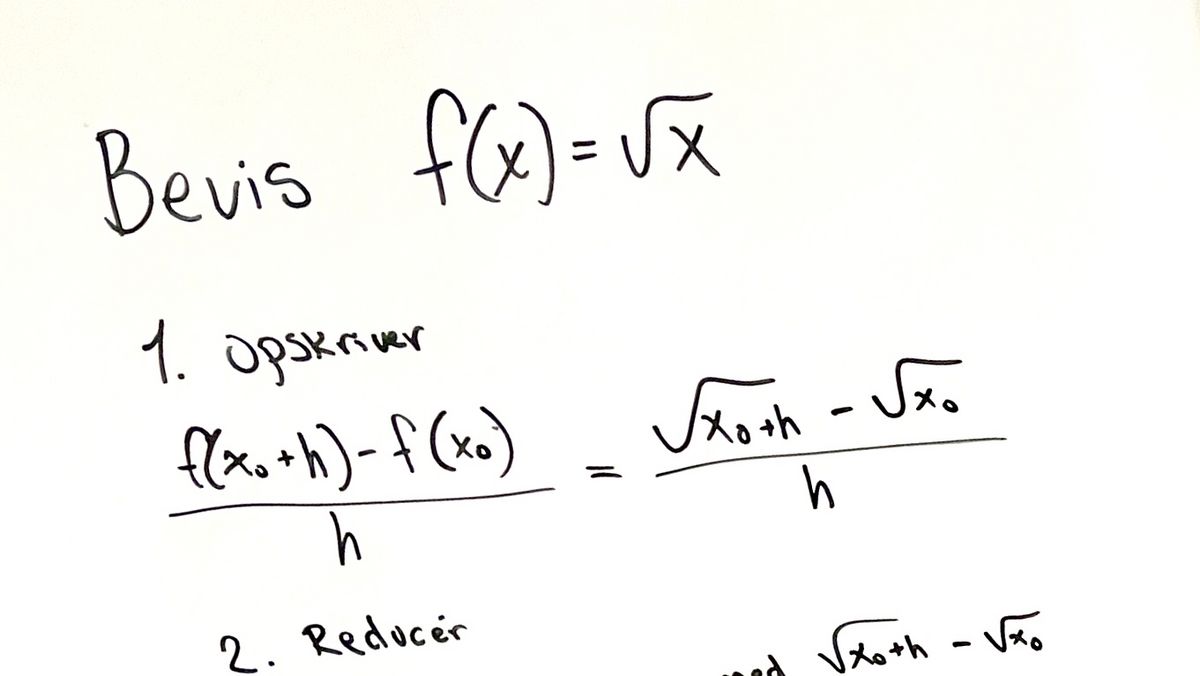 Bevis f(x) = √x
1. Opskriver
f(x₀+h) - f(x₀) / h = √x₀+h - √x₀ / h
2. Reducér
√x₀+h - √x₀